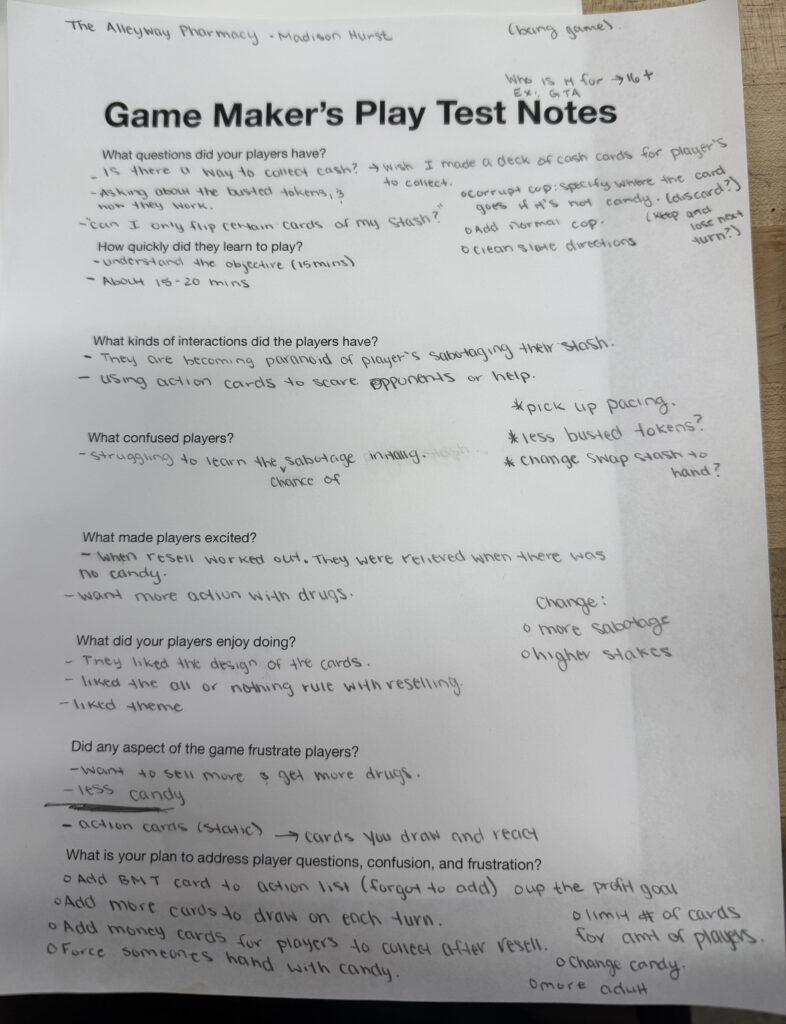 The Alleyway Pharmacy - Madison Hurst
(being game).
Who is it for → 16+
Ex: GTA
Game Maker's Play Test Notes
What questions did your players have?
- Is there a way to collect cash? → Wish I made a deck of cash cards for player's
to collect.
- Asking about the busted tokens, &
how they work.
- "Can I only flip certain cards of my stash?"
o Corrupt cop: specify where the card
goes if it's not candy. (discard?)
(keep and
lose next
turn?)
o Add normal cop.
o Clean slate directions
How quickly did they learn to play?
- understand the objective (15 mins)
- About 15-20 mins
What kinds of interactions did the players have?
- They are becoming paranoid of player's sabotaging their stash.
- using action cards to scare opponents or help.
* pick up pacing.
* less busted tokens?
* change swap stash to
hand?
What confused players?
- Struggling to learn the chance of sabotage initially.
What made players excited?
- When resell worked out. They were relieved when there was
no candy.
- want more action with drugs.
Change:
o more sabotage
o higher stakes
What did your players enjoy doing?
- They liked the design of the cards.
- liked the all or nothing rule with reselling.
- liked theme
Did any aspect of the game frustrate players?
- want to sell more & get more drugs.
- less candy
- action cards (static) → cards you draw and react
What is your plan to address player questions, confusion, and frustration?
o Add BMT card to action list (forgot to add) o up the profit goal
o Add more cards to draw on each turn.
o Add money cards for players to collect after resell.
o Force someones hand with candy.
o limit # of cards
for amt of players.
o Change candy.
o more adult